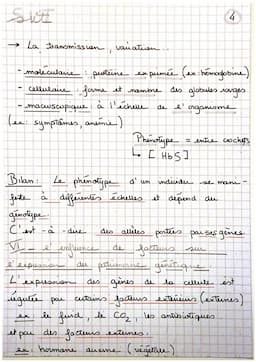 SVT
4
→ La transmission, variation...
- moléculaire : protéine exprimée (ex: hémoglobine)
- cellulaire : forme et nombre des globules rouges
- macroscopique : à l'échelle de l'organisme
(ex: symptômes, anémie)
Phénotype = entre crochets
↳ [HbS]
Bilan : Le phénotype d'un individu se mani-
feste à différentes échelles et dépend du
génotype.
C'est-à-dire des allèles portés par ses gènes.
VI - L'influence de facteurs sur
l'expression du patrimoine génétique
L'expression des gènes de la cellule est
régulée par certains facteurs extérieurs (externes)
ex: le froid, le CO2, les antibiotiques
et par des facteurs externes.
ex: hormone auxine (végétale)